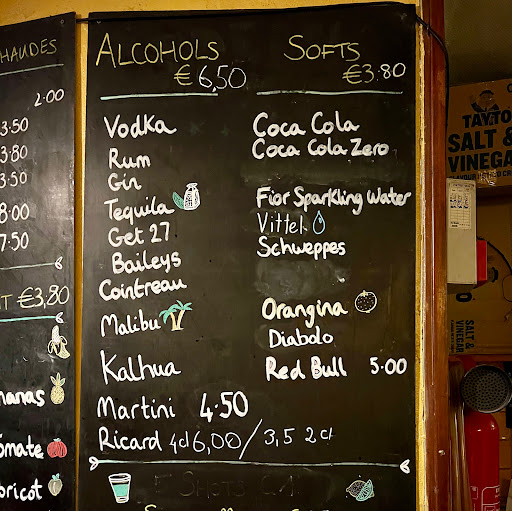 HAUDES
2.00
3.50
3.80
3.50
8.00
7.50
T €3,80
nanas
omate
bricot
ALCOHOLS
€6,50
Vodka
Rum
Gin
Tequila
Get 27
Baileys
Cointreau
Malibu
Kalhua
Martini 4.50
Ricard 4cl 6,00/3,5 2cl
SOFTS
€3.80
Coca Cola
Coca Cola Zero
Fior Sparkling Water
Vittel
Schweppes
Orangina
Diabolo
Red Bull 5.00
SHOTS
TAYTO
SALT &
VINEGAR
SALT &
VINEGAR